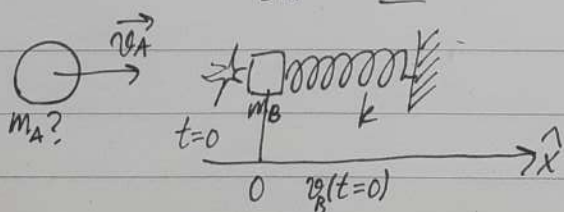 v_A
m_A?
m_B
k
t=0
x̂
0 v_B(t=0)